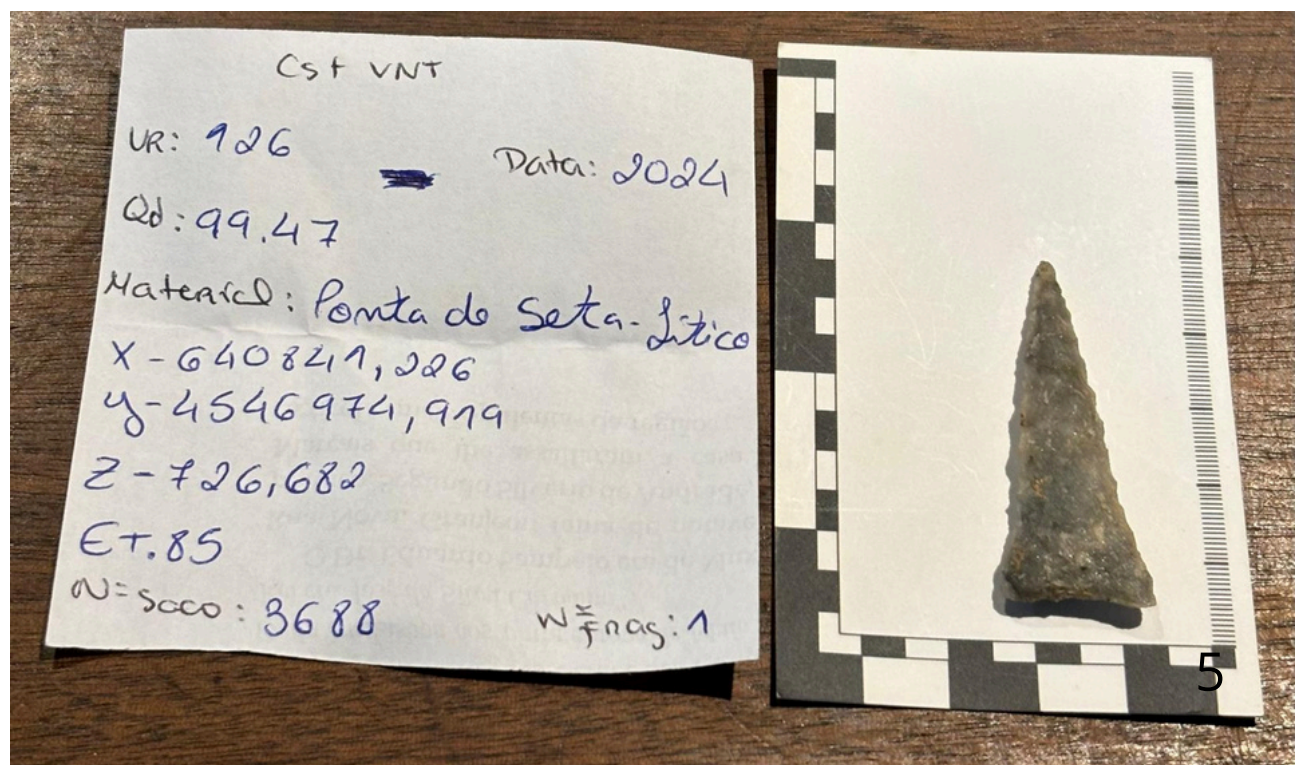 Cst VNT
UR: 126
Data: 2024
Qd: 99.47
Material: Ponta de Seta - Lítico
X - 640841,226
y - 4546974,919
Z - 726,682
ET. 85
Nº saco: 3688
Nº frag: 1
5